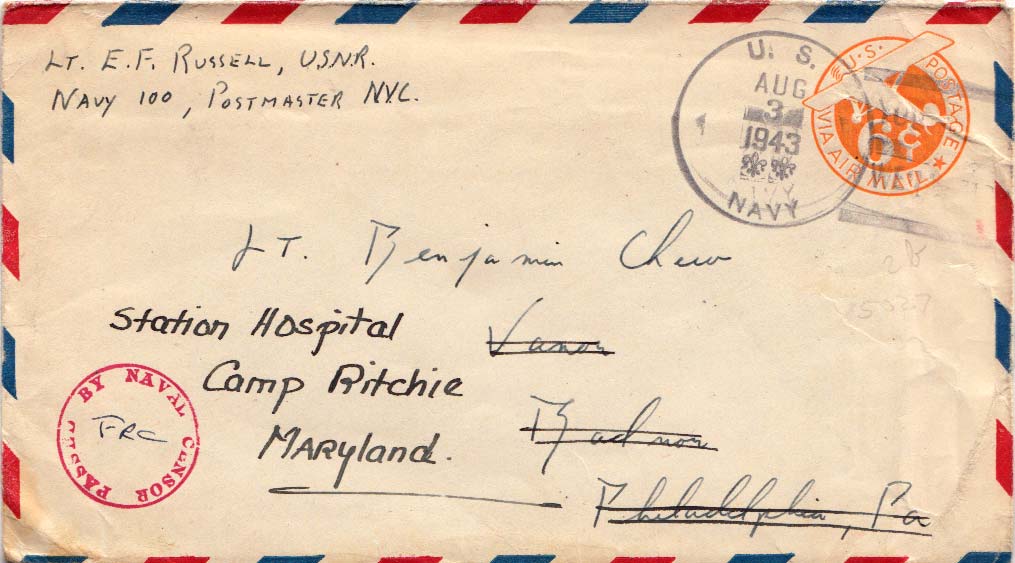 LT. E. F. RUSSELL, U.S.N.R.
NAVY 100, POSTMASTER N.Y.C.
U. S.
AUG
3
1943
NAVY
U.S. POSTAGE
6c
VIA AIR MAIL
LT. Benjamin Chew
Station Hospital
Vanor
Camp Ritchie
Radnor
MARyland.
Philadelphia, Pa
PASSED BY NAVAL CENSOR
FRC